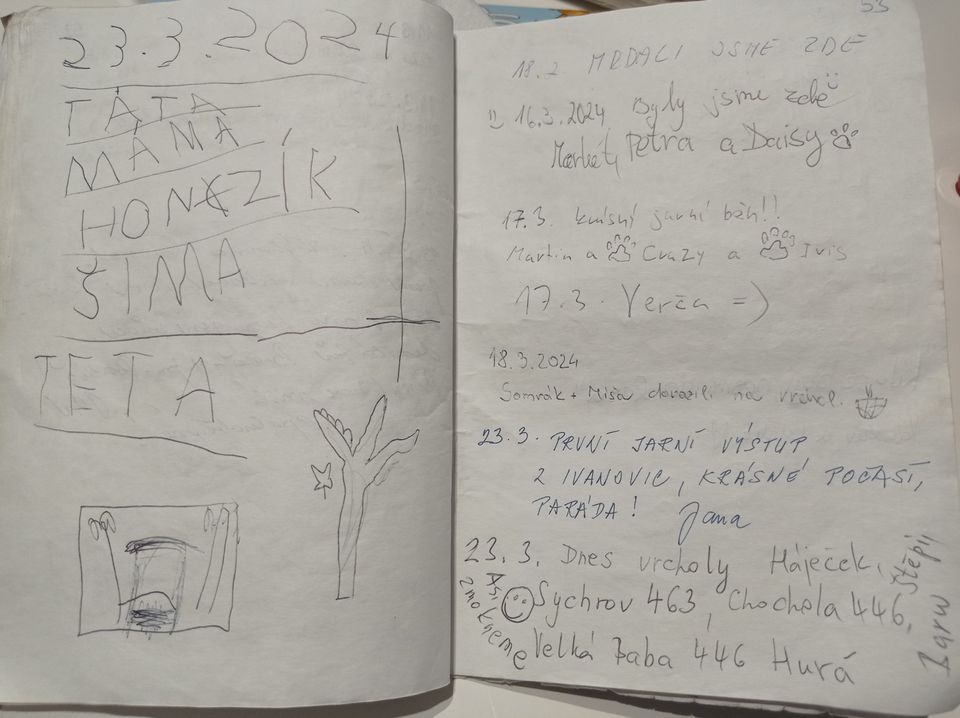 23.3.2024
TÁTA
MÁMA
HONZÍK
ŠIMA
TETA
53
18.2. MRDALI JSME ZDE
16.3.2024 Byly jsme zde
Markét, Petra a Daisy
17.3. krásný jarní běh!!
Martin a Crazy a Iris
17.3. Verča =)
18.3.2024
Somrák + Míša dorazili na vrchol.
23.3. PRVNÍ JARNÍ VÝSTUP
Z IVANOVIC, KRÁSNÉ POČASÍ,
PARÁDA! Jana
23.3. Dnes vrcholy Háječek,
Sychrov 463, Chochola 446,
Velká Baba 446 Hurá
Asi zmokneme